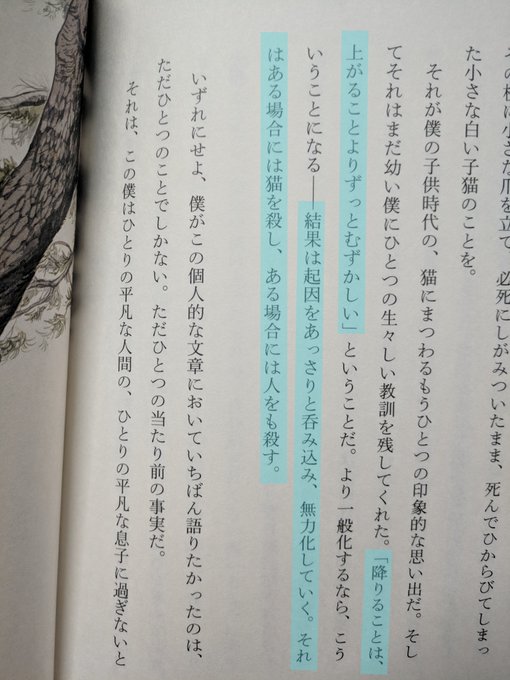 その枝に小さな爪を立て、必死にしがみついたまま、死んでひからびてしまっ
た小さな白い子猫のことを。
それが僕の子供時代の、猫にまつわるもうひとつの印象的な思い出だ。そし
てそれはまだ幼い僕にひとつの生々しい教訓を残してくれた。「降りることは、
上がることよりずっとむずかしい」ということだ。より一般化するなら、こう
いうことになる——結果は起因をあっさりと呑み込み、無力化していく。それ
はある場合には猫を殺し、ある場合には人をも殺す。
いずれにせよ、僕がこの個人的な文章においていちばん語りたかったのは、
ただひとつのことでしかない。ただひとつの当たり前の事実だ。
それは、この僕はひとりの平凡な人間の、ひとりの平凡な息子に過ぎないと